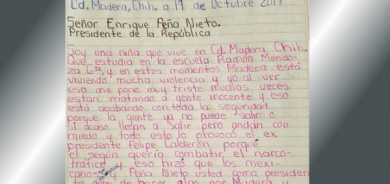 Cd. Madera, Chih. a 19 de Octubre 2017
Señor Enrique Peña Nieto.
Presidente de la República
Soy una niña que vive en Cd. Madera, Chih.
Que estudia en la escuela Ramón Mendo-
za 6° y en estos momentos Madera está
viviendo mucha violencia y yo al ver
eso me pone muy triste muchas veces
están matando a gente inocente y eso
está acabando con toda la seguridad
porque la gente ya no puede salir o
si acaso llegan a salir pero andan con
miedo y todo esto lo provocó el ex
presidente Felipe Calderón porque
el según quería combatir el narco-
tráfico y eso hizo que los mexi-
canos Peña Nieto usted como presiden-
te de hacer algo por Madera